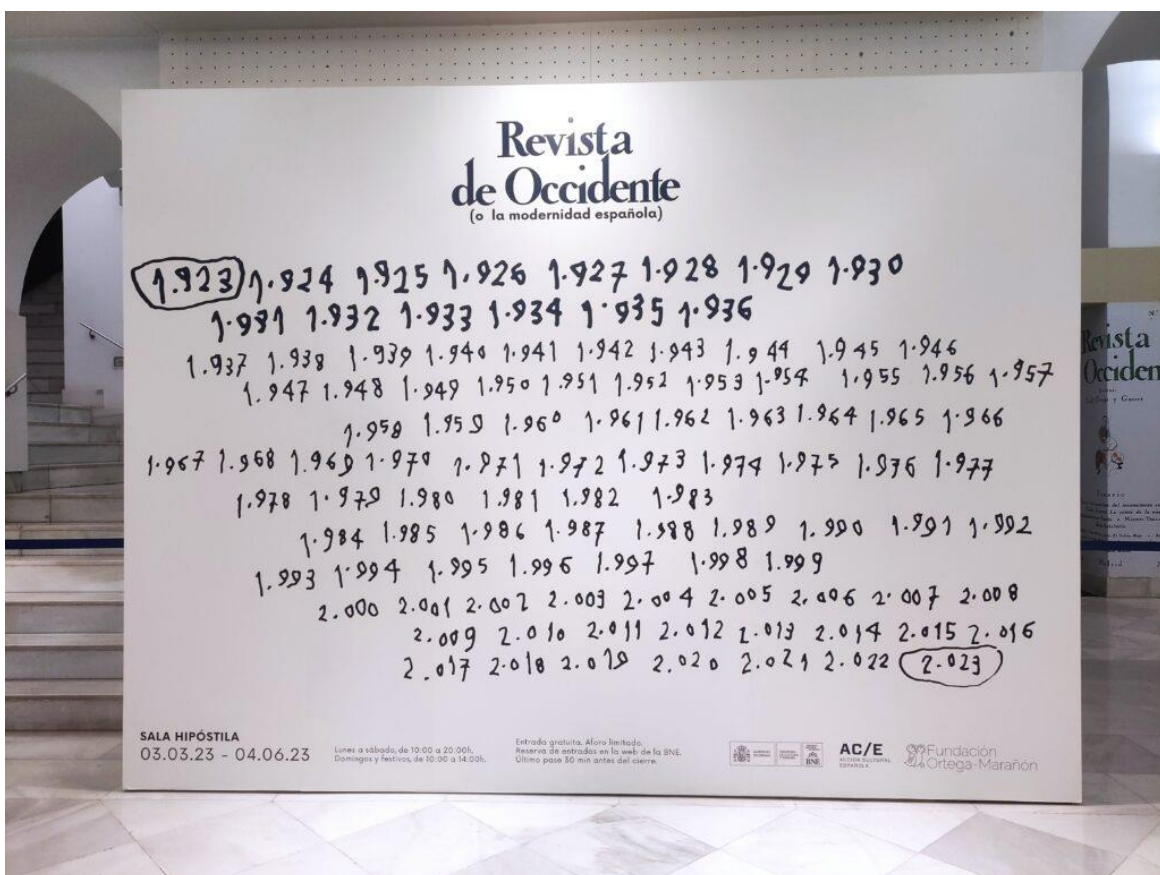 Revista
de Occidente
(o la modernidad española)
1.923 1.924 1.925 1.926 1.927 1.928 1.929 1.930
1.931 1.932 1.933 1.934 1.935 1.936
1.937 1.938 1.939 1.940 1.941 1.942 1.943 1.944 1.945 1.946
1.947 1.948 1.949 1.950 1.951 1.952 1.953 1.954 1.955 1.956 1.957
1.958 1.959 1.960 1.961 1.962 1.963 1.964 1.965 1.966
1.967 1.968 1.969 1.970 1.971 1.972 1.973 1.974 1.975 1.976 1.977
1.978 1.979 1.980 1.981 1.982 1.983
1.984 1.985 1.986 1.987 1.988 1.989 1.990 1.991 1.992
1.993 1.994 1.995 1.996 1.997 1.998 1.999
2.000 2.001 2.002 2.003 2.004 2.005 2.006 2.007 2.008
2.009 2.010 2.011 2.012 2.013 2.014 2.015 2.016
2.017 2.018 2.019 2.020 2.021 2.022 2.023
SALA HIPÓSTILA
03.03.23 - 04.06.23
Lunes a sábado, de 10:00 a 20:00h.
Domingos y festivos, de 10:00 a 14:00h.
Entrada gratuita. Aforo limitado.
Reserva de entradas en la web de la BNE.
Último pase 30 min antes del cierre.
BNE
AC/E
ACCIÓN CULTURAL
ESPAÑOLA
Fundación
Ortega-Marañón
Revista
Occiden
Madrid